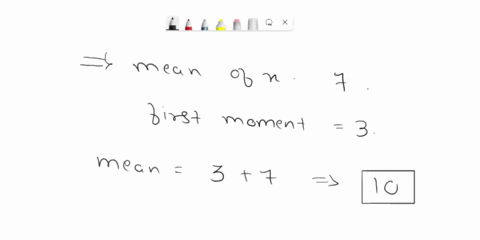 ⇒ mean of x. 7.
first moment = 3.
mean = 3 + 7 ⇒ 10